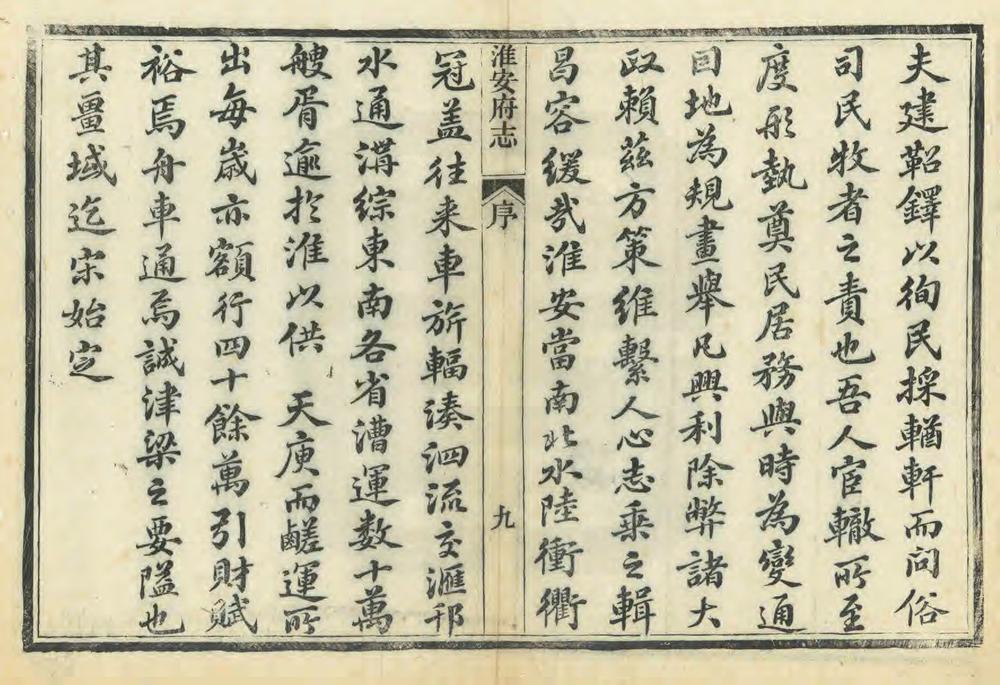 夫建鞀鐸以徇民採輶軒而問俗
司民牧者之責也吾人宦轍所至
度形埶奠民居務與時為變通
因地為規畫舉凡興利除弊諸大
政賴茲方策維繫人心志乘之輯
曷容緩哉淮安當南北水陸衝衢
淮安府志 序 九
冠盖往来車旂輻湊泗流交滙邗
水通溝綜東南各省漕運数十萬
艘胥逾於淮以供 天庾而鹺運所
出每歲亦額行四十餘萬引財賦
裕焉舟車通焉誠津梁之要隘也
其畺域迄宋始定